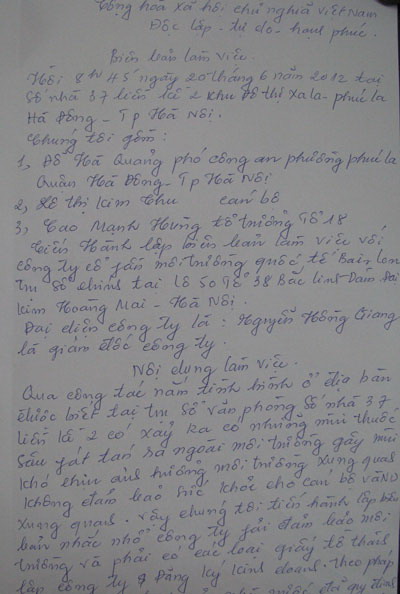 Cộng hòa xã hội chủ nghĩa việt Nam
Độc lập - tự do - hạnh phúc.
Biên bản làm việc.
Hồi 8h 45 ngày 20 tháng 6 năm 2012 tại
Số nhà 37 liền kề 2 Khu đô thị xala - phúc la
Hà Đông - Tp Hà Nội.
Chúng tôi gồm:
1, Đỗ Hà Quảng phó công an phường phúc la
Quận Hà Đông - Tp Hà Nội
2, Lê thị Kim Thu cán bộ
3, Cao Mạnh Hùng tổ trưởng Tổ 18
Tiến Hành lập biên bản làm việc với
công ty cổ phần môi trường quốc tế
trụ sở chính tại lô 50 Tổ 38 Bắc linh Đàm Đại
kim Hoàng Mai - Hà Nội.
Đại diện công ty là: Nguyễn Hồng Giang
là giám đốc công ty.
Nội dung làm việc.
Qua công tác nắm tình hình ở địa bàn
được biết tại trụ sở văn phòng số nhà 37
liền kề 2 có xảy ra có những mùi thuốc
sâu phát tán ra ngoài môi trường gây mùi
khó chịu ảnh hưởng môi trường xung quanh
không đảm bảo sức khỏe cho cán bộ và ND
xung quanh. vậy chúng tôi tiến hành lập biên
bản nhắc nhở công ty phải đảm bảo môi
trường và phải có các loại giấy tờ thành
lập công ty Đăng ký kinh doanh. theo pháp